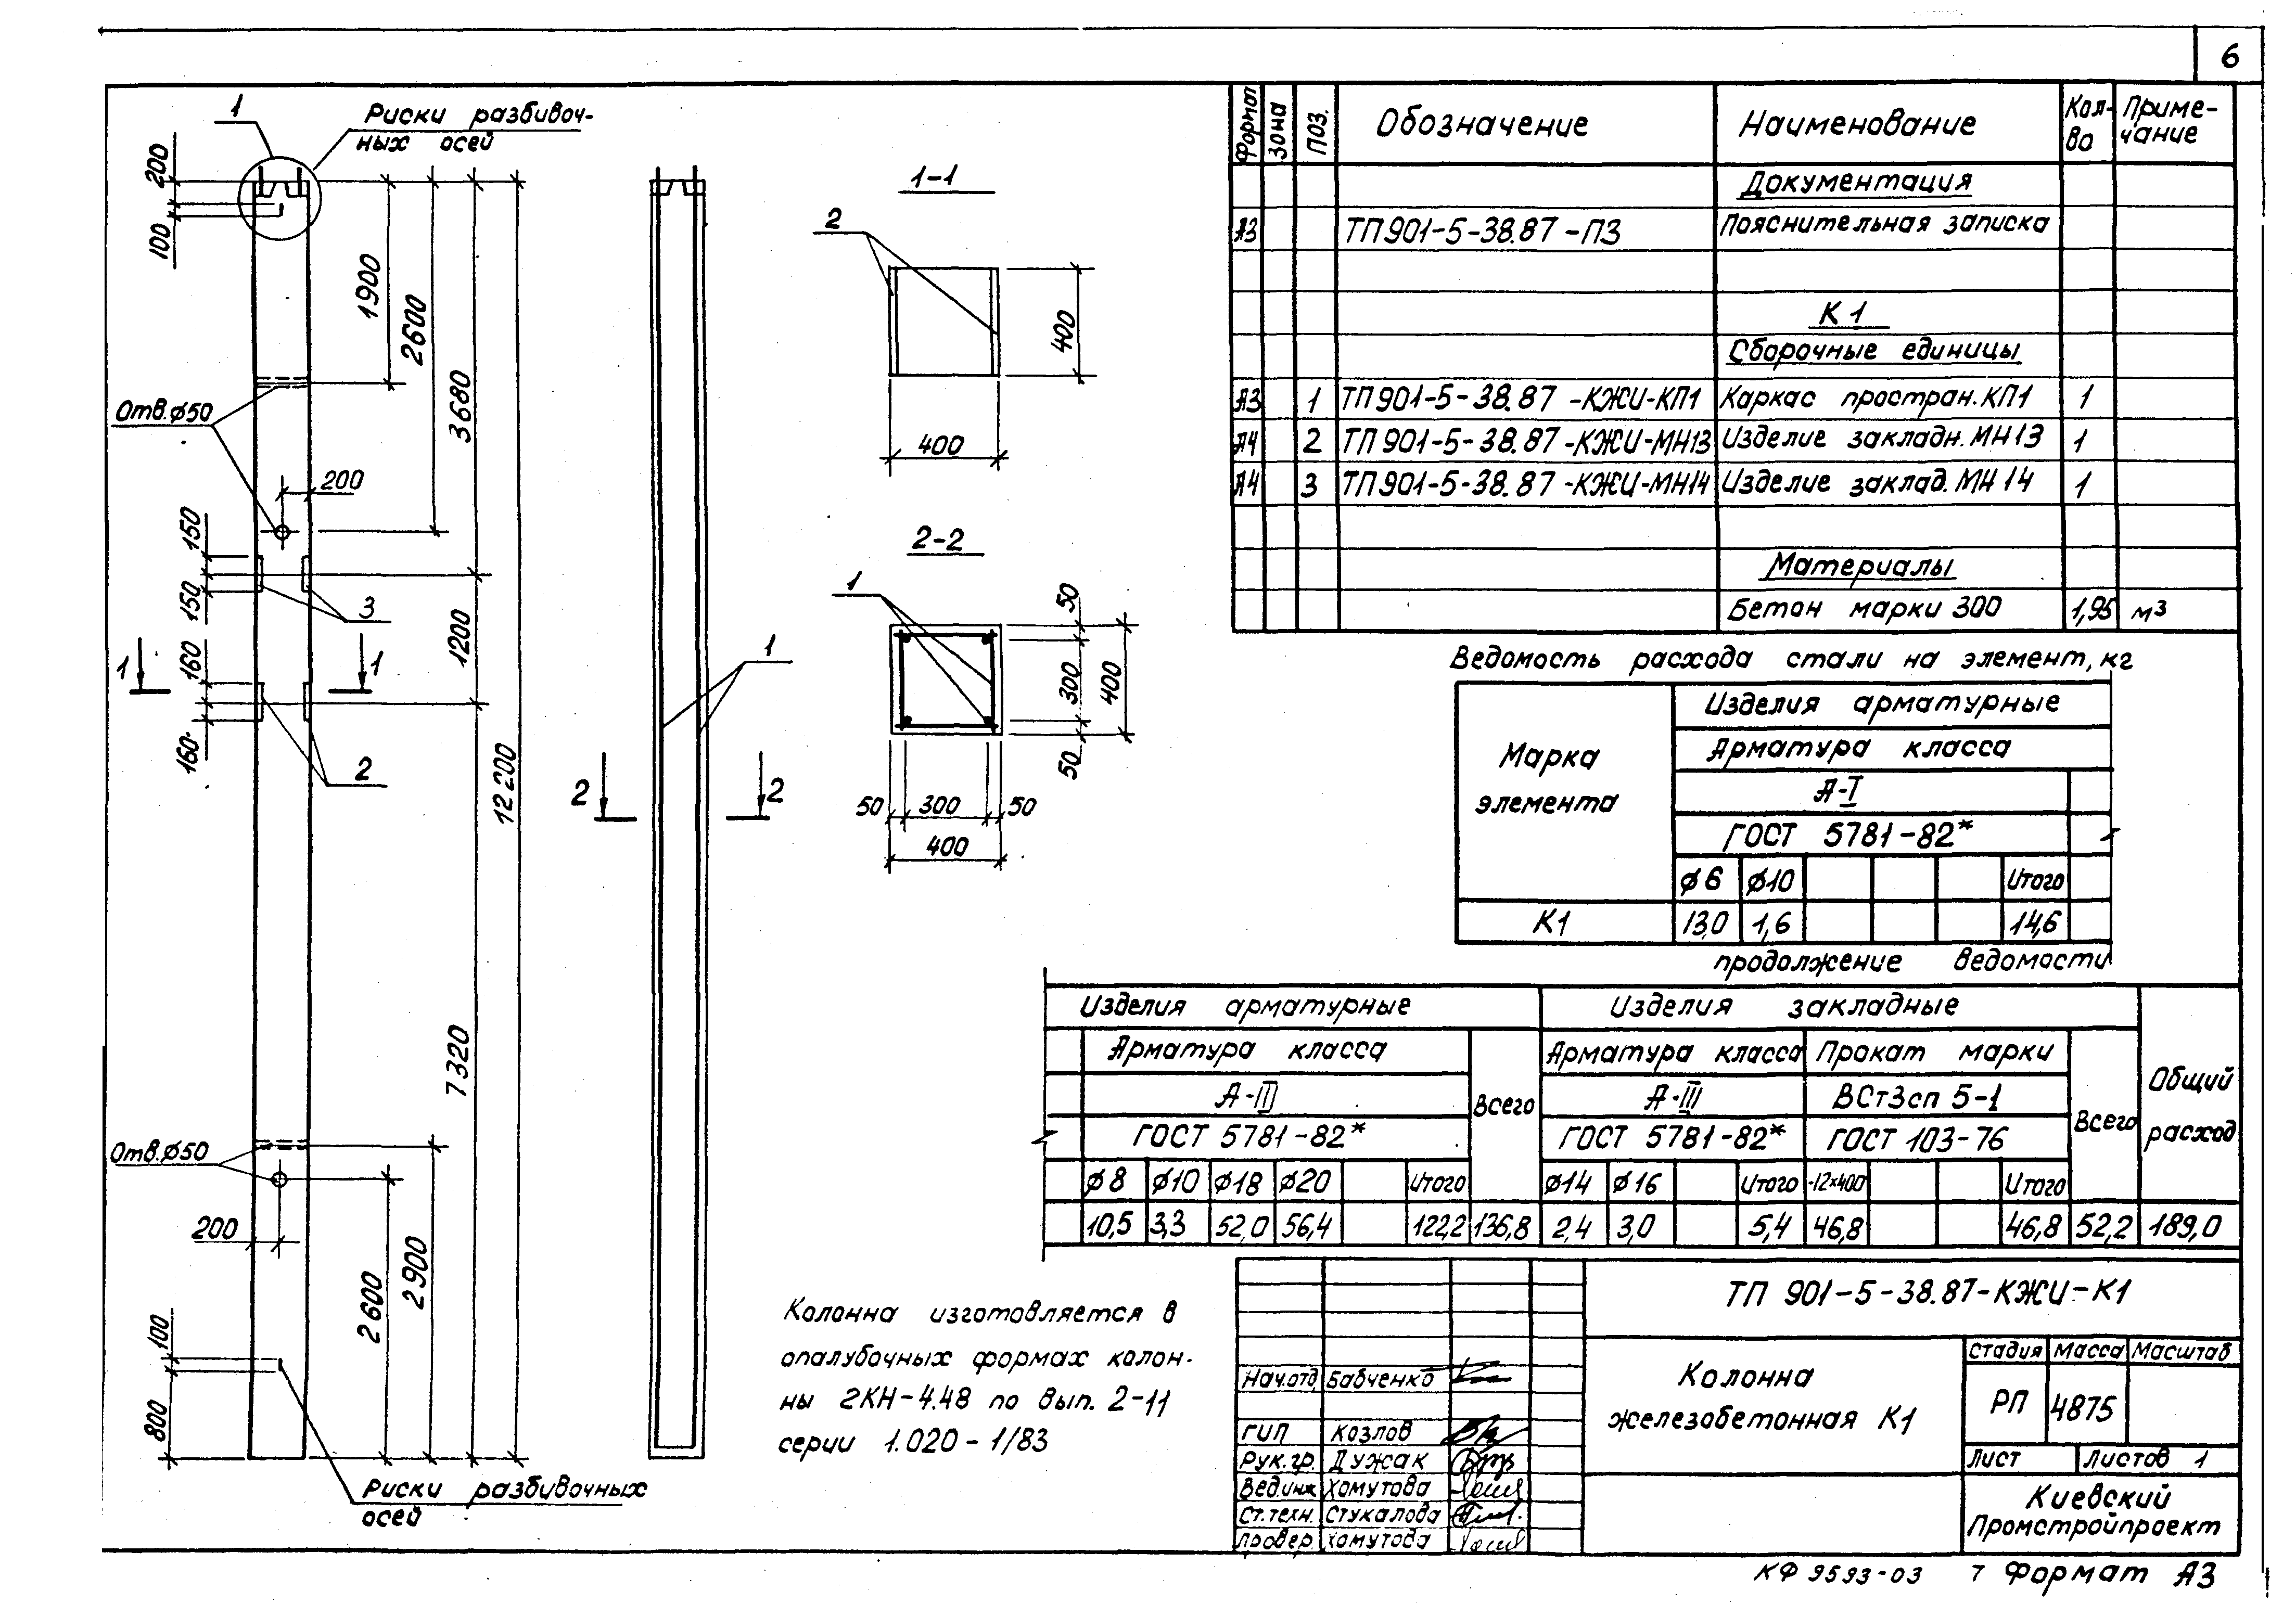 6
1
Риски разбивоч-
ных осей
200
100
1900
2600
3680
12200
Отв.ϕ50
200
150
150
3
1200
1
1
160
160
2
7320
Отв.ϕ50
200
2600
2900
100
800
Риски разбивочных
осей
1
2
2
1-1
2
400
400
2-2
1
50
300
400
50
50
300
50
400
Колонна изготовляется в
опалубочных формах колон-
ны 2КН-4.48 по вып. 2-11
серии 1.020-1/83
Формат
Зона
Поз.
Обозначение
Наименование
Кол-
во
Приме-
чание
Документация
А3 ТП901-5-38.87-ПЗ Пояснительная записка
К1
Сборочные единицы
А3 1 ТП901-5-38.87-КЖИ-КП1 Каркас простран.КП1 1
А4 2 ТП901-5-38.87-КЖИ-МН13 Изделие закладн.МН13 1
А4 3 ТП901-5-38.87-КЖИ-МН14 Изделие заклад.МН14 1
Материалы
Бетон марки 300 1,95 м3
Ведомость расхода стали на элемент, кг
Марка
элемента
Изделия арматурные
Арматура класса
А-I
ГОСТ 5781-82*
ϕ6 ϕ10 Итого
К1 13,0 1,6 14,6
продолжение ведомости
Изделия арматурные Изделия закладные
Общий
расход
Арматура класса Всего Арматура класса Прокат марки Всего
А-III А-III ВСт3сп 5-1
ГОСТ 5781-82* ГОСТ 5781-82* ГОСТ 103-76
ϕ8 ϕ10 ϕ18 ϕ20 Итого ϕ14 ϕ16 Итого -12×400 Итого
10,5 3,3 52,0 56,4 122,2 136,8 2,4 3,0 5,4 46,8 46,8 52,2 189,0
ТП 901-5-38.87-КЖИ-К1
Колонна
железобетонная К1
Стадия Масса Масштаб
РП 4875
Лист Листов 1
Киевский
Промстройпроект
Нач.отд. Бабченко
ГИП Козлов
Рук.гр. Дужак
Вед.инж Хомутова
Ст.техн. Стукалова
Провер. Хомутова
КФ 9593-03 7 Формат А3